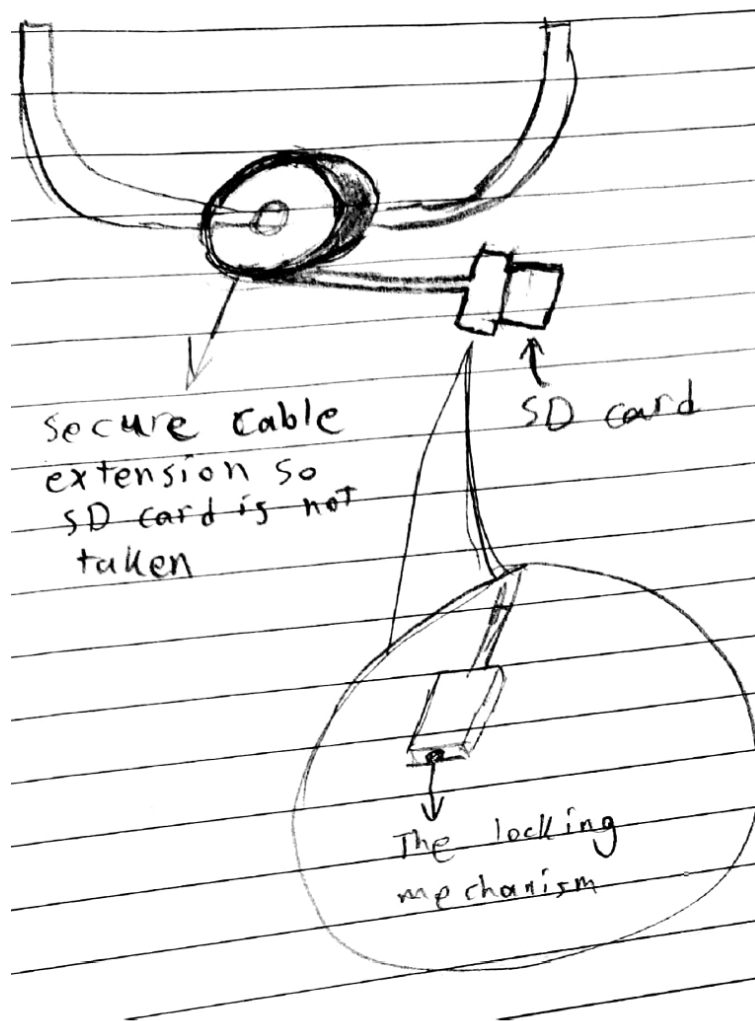 secure cable
extension so
SD card is not
taken
SD card
The locking
mechanism